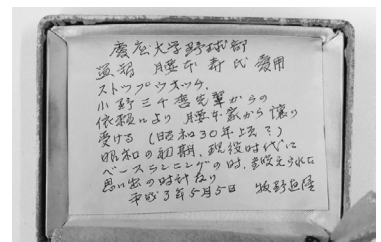 慶應大学野球部
監督 腰本寿氏愛用
ストップウオッチ、
小野三千麿先輩からの
依頼により 腰本家から譲り
受ける (昭和30年頃?)
昭和の初期、現役時代に
ベースランニングの時、鍛えられた
思い出の時計なり
平成3年5月5日 牧野直隆